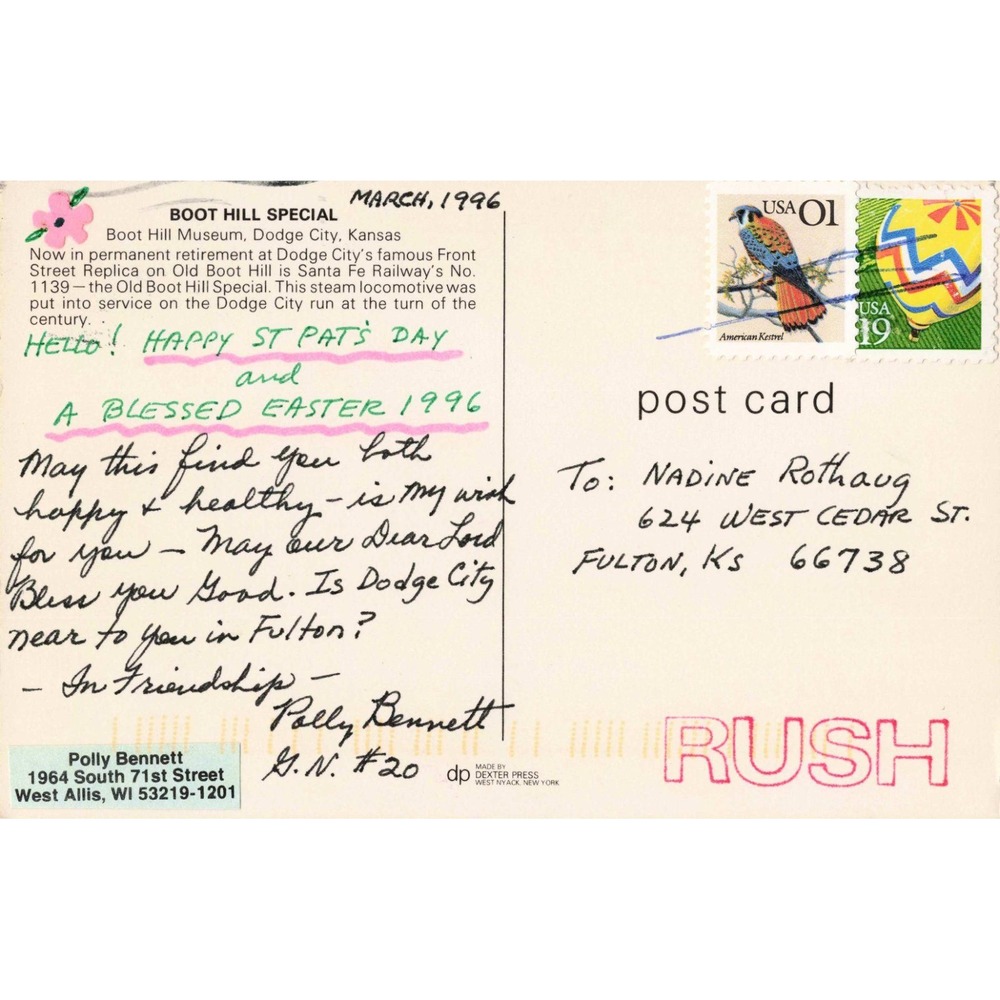 MARCH, 1996
BOOT HILL SPECIAL
Boot Hill Museum, Dodge City, Kansas
Now in permanent retirement at Dodge City's famous Front
Street Replica on Old Boot Hill is Santa Fe Railway's No.
1139 — the Old Boot Hill Special. This steam locomotive was
put into service on the Dodge City run at the turn of the
century.
HELLO! HAPPY ST PAT'S DAY
and
A BLESSED EASTER 1996
May this find you both
happy & healthy – is my wish
for you – May our Dear Lord
Bless you Good. Is Dodge City
near to you in Fulton?
– In Friendship –
Polly Bennett
G.N. #20
Polly Bennett
1964 South 71st Street
West Allis, WI 53219-1201
dp MADE BY
DEXTER PRESS
WEST NYACK, NEW YORK
USA 01
American Kestrel
USA
19
post card
To: NADINE Rothaug
624 WEST CEDAR ST.
FULTON, KS 66738
RUSH